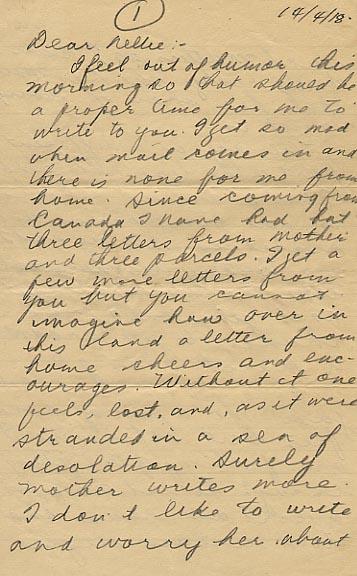 1
14/4/18.
Dear Nellie:-
I feel out of humor this
morning so that should be
a proper time for me to
write to you. I get so mad
when mail comes in and
there is none for me from
home. Since coming from
Canada I have had but
three letters from mother
and three parcels. I get a
few more letters from
you but you cannot
imagine how over in
this land a letter from
home cheers and enc-
ourages. Without it one
feels, lost, and, as it were
stranded in a sea of
desolation. Surely
mother writes more.
I don't like to write
and worry her about